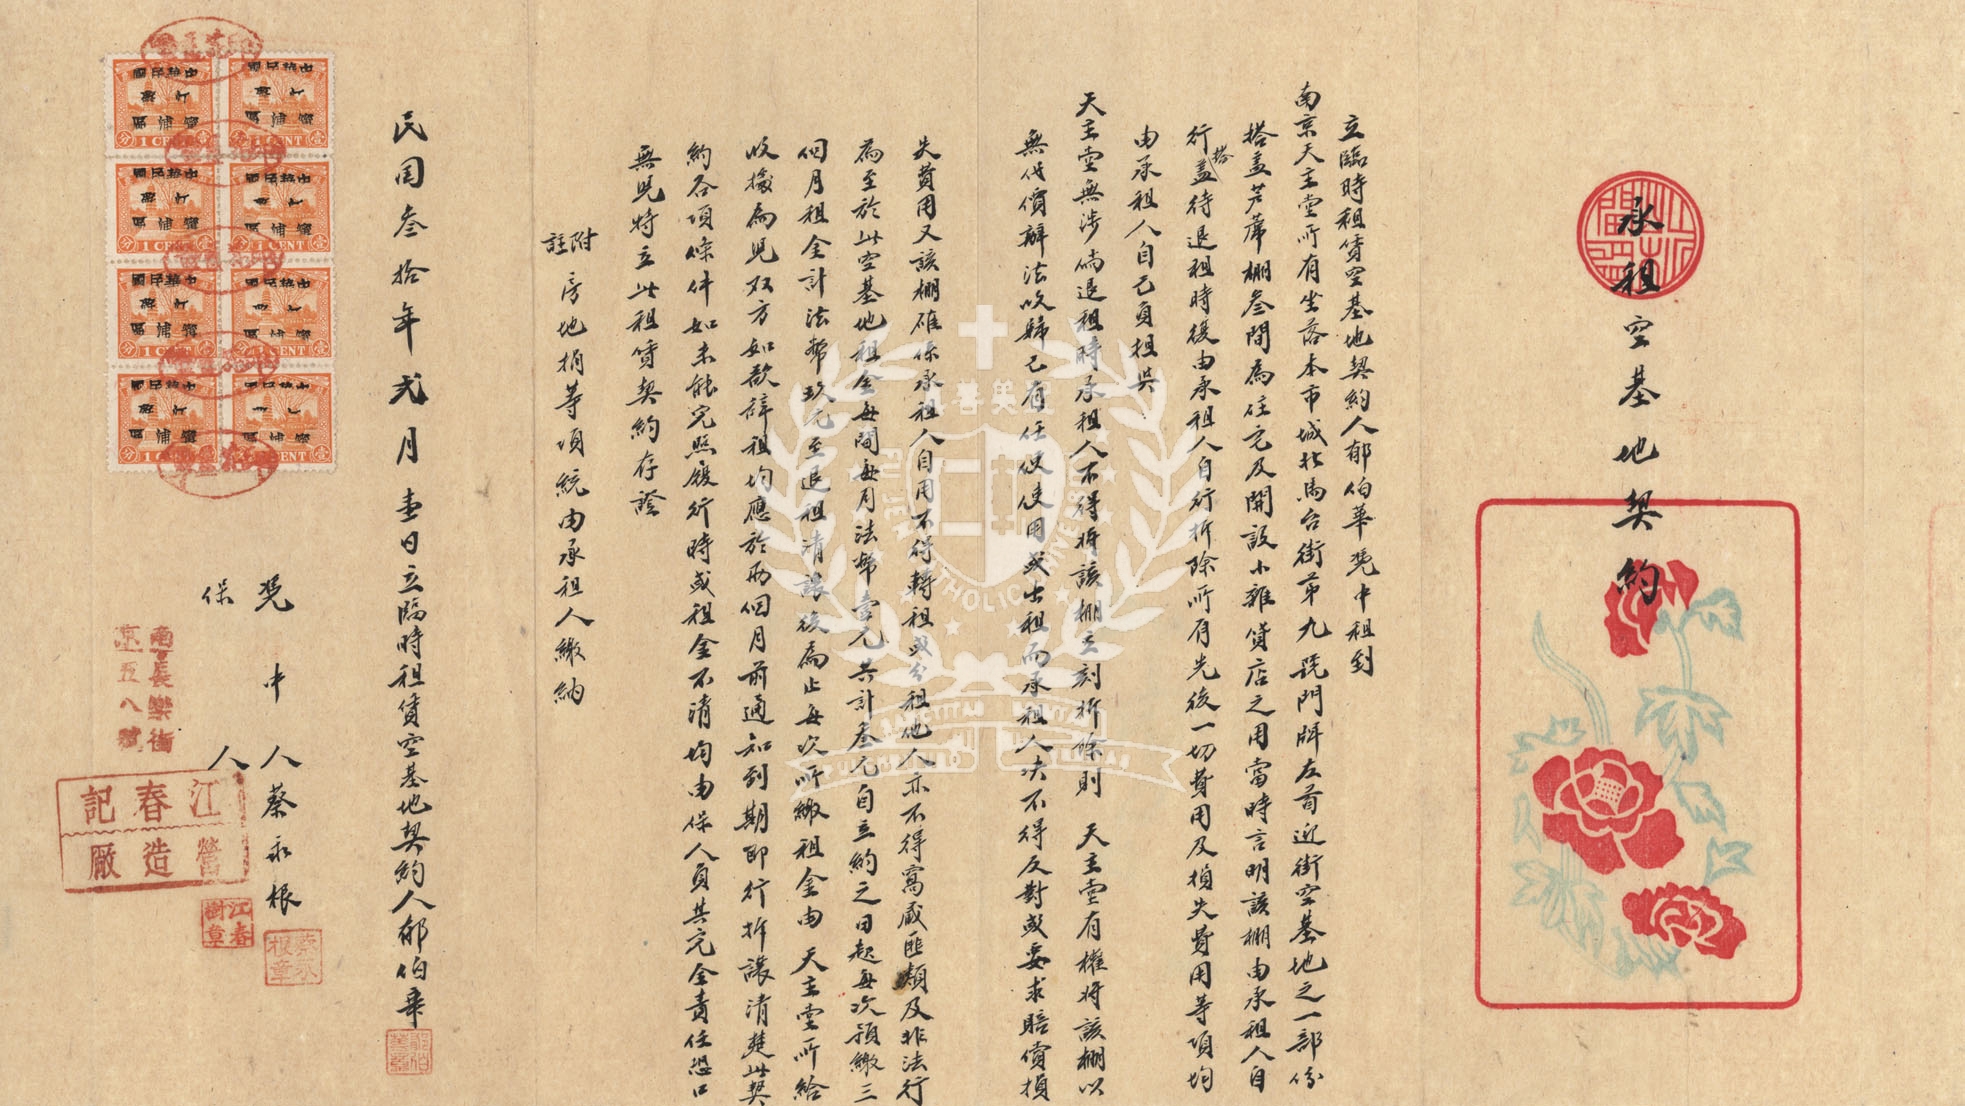 承租空基地契約
立臨時租賃空基地契約人郁伯華凴中租到
南京天主堂所有坐落本市城北馬台街第九號門牌左首近街空基地之一部份
搭蓋芦蓆棚叁間為住宅及開設小雜貨店之用當時言明該棚由承租人自
行搭蓋待退租時後由承租人自行拆除所有先後一切費用及損失費用等項均
由承租人自己負担與
天主堂無涉倘退租時承租人不得將該棚立刻拆除則 天主堂有權將該棚以
無代價辦法收歸己有任便使用或出租而承租人决不得反對或要求賠償損
失費用又該棚確係承租人自用不得轉租或分租他人亦不得窩藏匪類及非法行
為至於此空基地租金每間每月法幣壹元共計叁元自立約之日起每次預繳三
個月租金計法幣玖元至退租清讓後為止每次所繳租金由 天主堂所給
收據為凴双方如欲辞租均應於兩個月前通知到期即行拆讓清楚此契
約各項條件如未能完照履行時或租金不清均由保人負其完全責任恐口
無凴特立此租賃契約存證
附註 房地捐等項統由承租人繳納
民国叁拾年弍月壹日立臨時租賃空基地契約人郁伯華
凴中人蔡永根
蔡永根章
保人
南京長樂街五八號
江春記
營造廠
江春樹章
中華民國
1 CENT
壹分